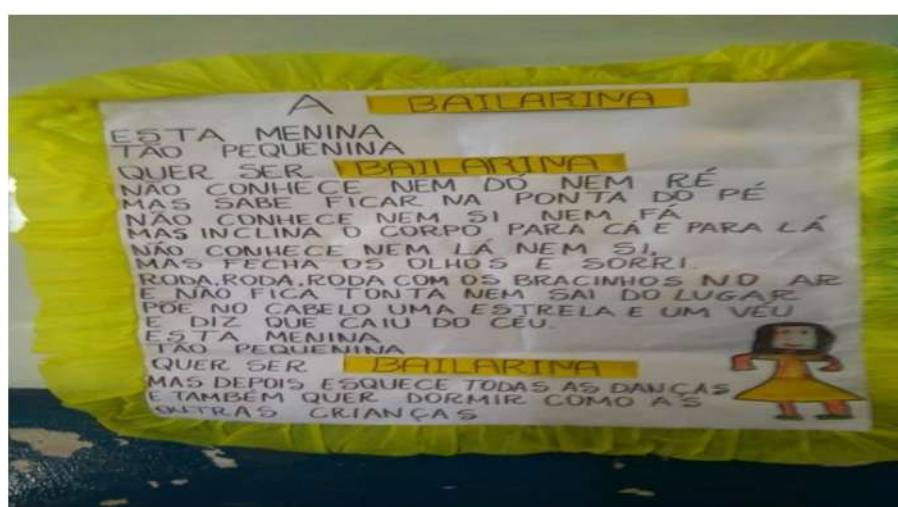 A BAILARINA
ESTA MENINA
TÃO PEQUENINA
QUER SER BAILARINA
NÃO CONHECE NEM DÓ NEM RÉ
MAS SABE FICAR NA PONTA DO PÉ
NÃO CONHECE NEM SI NEM FÁ
MAS INCLINA O CORPO PARA CÁ E PARA LÁ
NÃO CONHECE NEM LÁ NEM SI,
MAS FECHA OS OLHOS E SORRI.
RODA,RODA,RODA COM OS BRACINHOS NO AR
E NÃO FICA TONTA NEM SAI DO LUGAR
PÕE NO CABELO UMA ESTRELA E UM VÉU
E DIZ QUE CAIU DO CÉU.
ESTA MENINA
TÃO PEQUENINA
QUER SER BAILARINA
MAS DEPOIS ESQUECE TODAS AS DANÇAS
E TAMBÉM QUER DORMIR COMO AS
OUTRAS CRIANÇAS